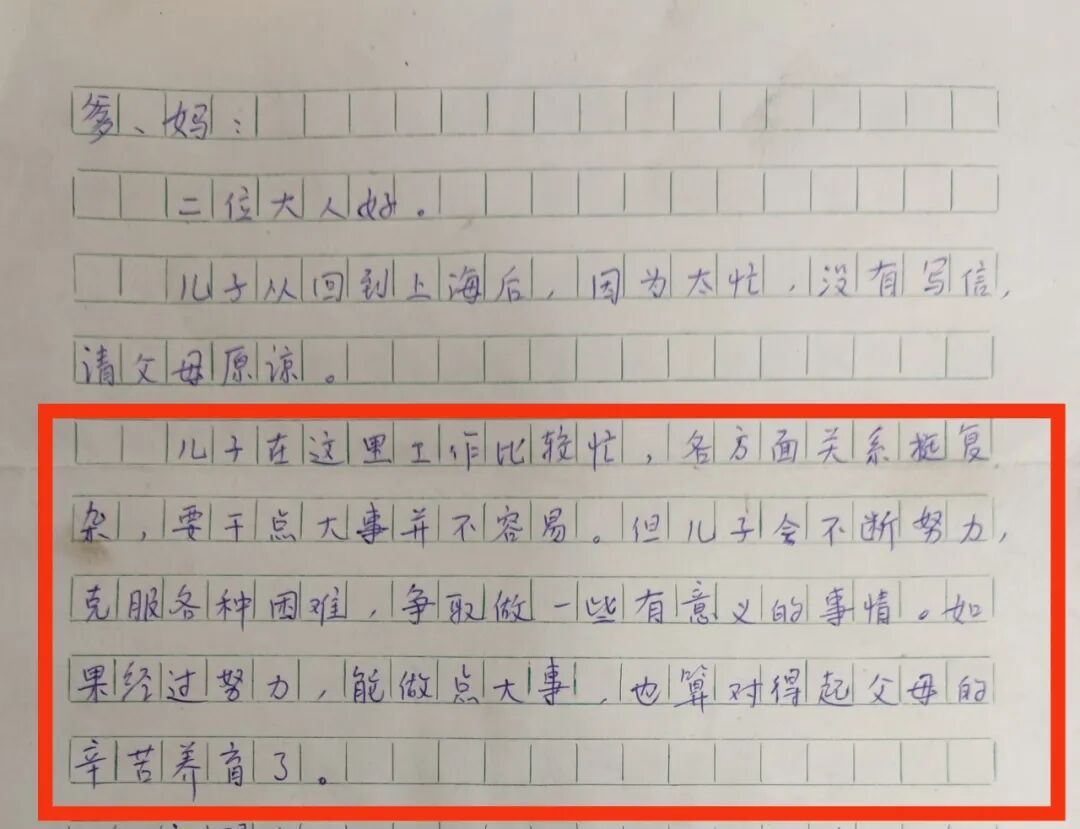 爹、妈：
二位大人好。
儿子从回到上海后，因为太忙，没有写信，
请父母原谅。
儿子在这里工作比较忙，各方面关系挺复
杂，要干点大事并不容易。但儿子会不断努力，
克服各种困难，争取做一些有意义的事情。如
果经过努力，能做点大事，也算对得起父母的
辛苦养育了。